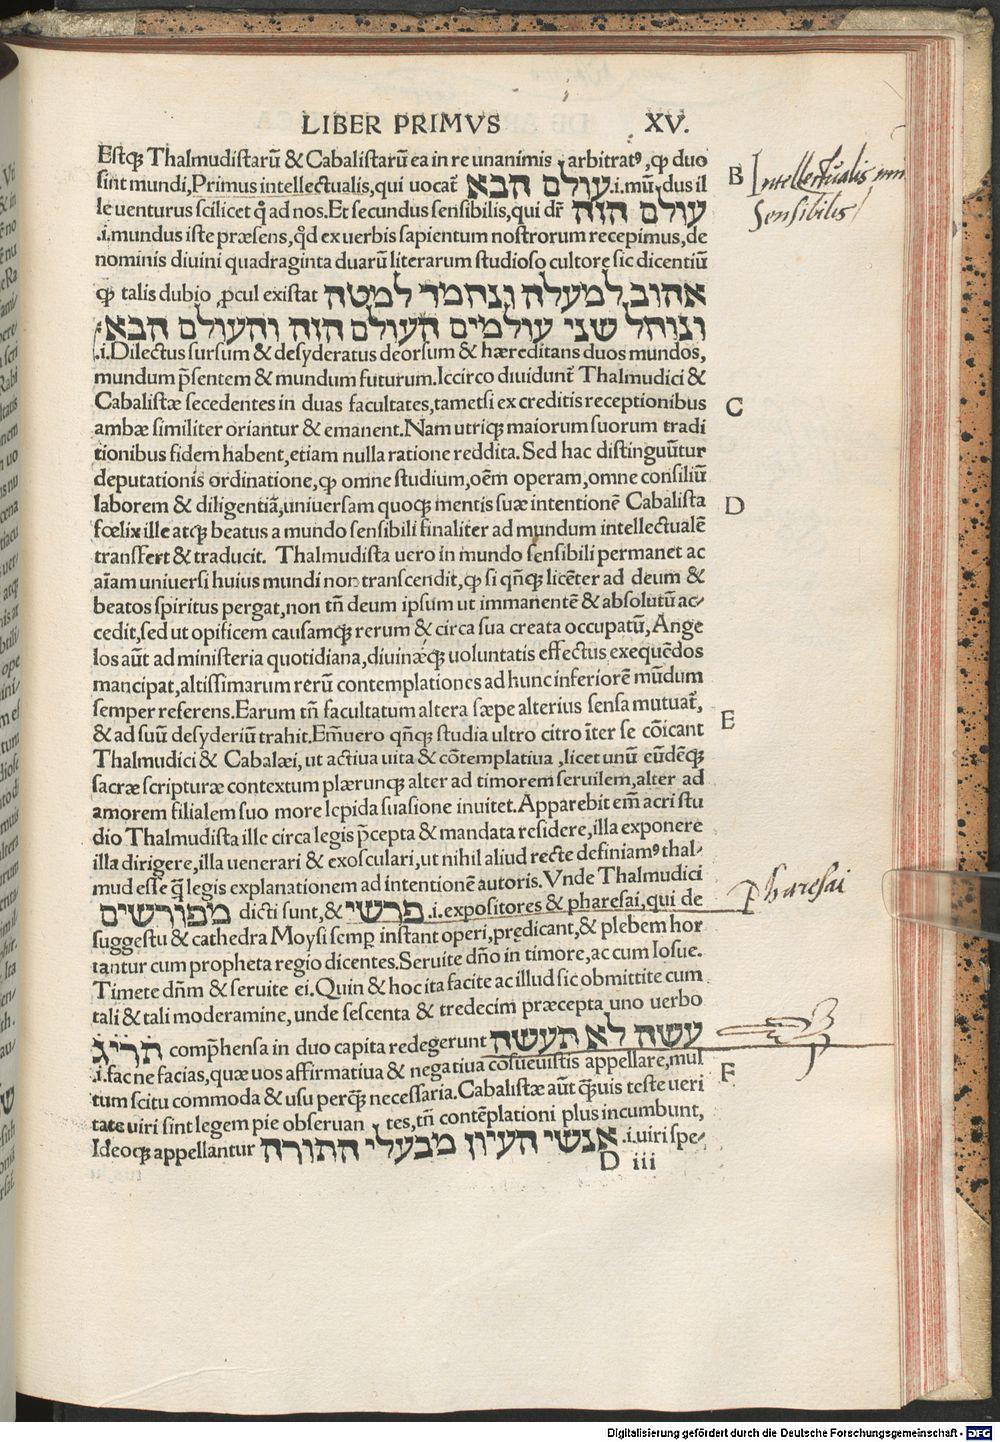 LIBER PRIMVS XV.
Estqꝫ Thalmudistarū & Cabalistarū ea in re unanimis arbitratꝰ, ꝙ duo
sint mundi, Primus intellectualis, qui uocat̄ עולם הבא .i. mū dus il
le uenturus scilicet q̄ ad nos. Et secundus sensibilis, qui dr̄ עולם הזה
.i. mundus iste præsens, qd̄ ex uerbis sapientum nostrorum recepimus, de
nominis diuini quadraginta duarū literarum studioso cultore sic dicentiū
ꝙ talis dubio ꝓcul existat אהוב למעלה ונחמד למטה
ונוחל שני עולמים העולם הזה והעולם הבא
.i. Dilectus sursum & desyderatus deorsum & hæreditans duos mundos,
mundum p̄sentem & mundum futurum. Iccirco diuidunt̄ Thalmudici &
Cabalistæ secedentes in duas facultates, tametsi ex creditis receptionibus
ambæ similiter oriantur & emanent. Nam utriqꝫ maiorum suorum tradi
tionibus fidem habent, etiam nulla ratione reddita. Sed hac distinguūtur
deputationis ordinatione, ꝙ omne studium, oēm operam, omne consiliū
laborem & diligentiā, uniuersam quoqꝫ mentis suæ intentionē Cabalista
fœlix ille atqꝫ beatus a mundo sensibili finaliter ad mundum intellectualē
transfert & traducit. Thalmudista uero in mundo sensibili permanet ac
aīam uniuersi huius mundi non transcendit, ꝙ si qn̄qꝫ licēter ad deum &
beatos spiritus pergat, non tn̄ deum ipsum ut immanentē & absolutū ac⸗
cedit, sed ut opificem causamqꝫ rerum & circa sua creata occupatū, Ange
los aūt ad ministeria quotidiana, diuinæqꝫ uoluntatis effectus exequēdos
mancipat, altissimarum rerū contemplationes ad hunc inferiorē mūdum
semper referens. Earum tn̄ facultatum altera sæpe alterius sensa mutuat̄,
& ad suū desyderiū trahit. Em̄uero qn̄qꝫ studia ultro citro īter se cōicant
Thalmudici & Cabalæi, ut actiua uita & cōtemplatiua, licet unū eūdēqꝫ
sacræ scripturæ contextum plærunqꝫ alter ad timorem seruilem, alter ad
amorem filialem suo more lepida suasione inuitet. Apparebit em̄ acri stu
dio Thalmudista ille circa legis p̄cepta & mandata residere, illa exponere
illa dirigere, illa uenerari & exosculari, ut nihil aliud recte definiamꝰ thal⸗
mud esse q̄ legis explanationem ad intentionē autoris. Vnde Thalmudici
מפורשים dicti sunt, & פרשי .i. expositores & pharesai, qui de
suggestu & cathedra Moysi semp̱ instant operi, prędicant, & plebem hor
tantur cum propheta regio dicentes. Seruite dn̄o in timore, ac cum Iosue.
Timete dn̄m & seruite ei. Quin & hoc ita facite ac illud sic obmittite cum
tali & tali moderamine, unde sescenta & tredecim præcepta uno uerbo
תריג comp̄hensa in duo capita redegerunt עשה לא תעשה
.i. fac ne facias, quæ uos affirmatiua & negatiua cosueuistis appellare, mul
tum scitu commoda & usu perqꝫ necessaria. Cabalistæ aūt qꝫuis teste ueri
tate uiri sint legem pie obseruan tes, tn̄ contēplationi plus incumbunt,
Ideoqꝫ appellantur אנשי העיון מבעלי התורה .i. uiri spe⸗
D iii
B
Intellectualis
Sensibilis
C
D
E
Pharesai
F
Digitalisierung gefördert durch die Deutsche Forschungsgemeinschaft - DFG